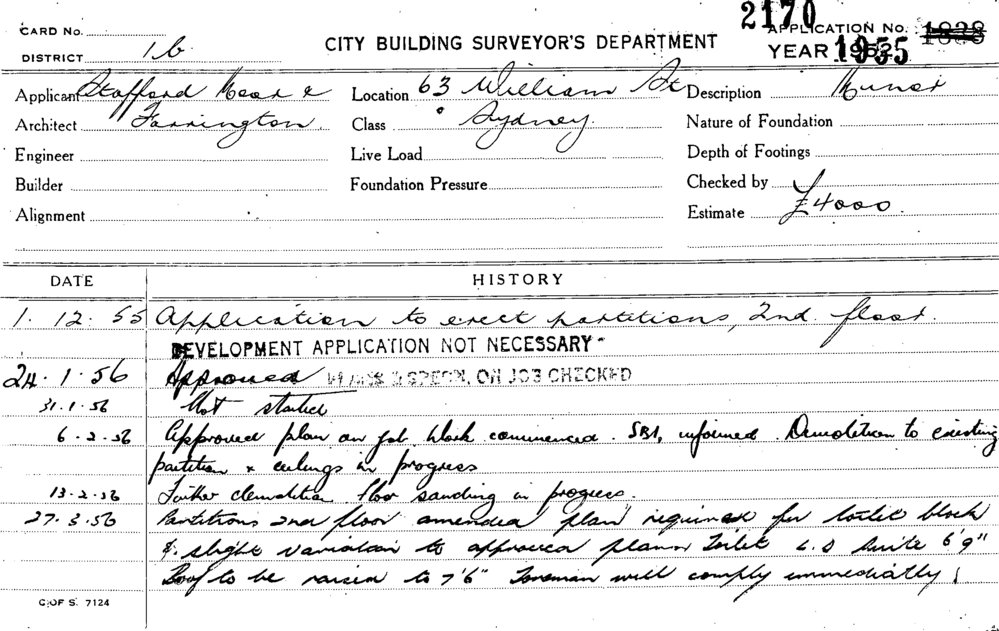 CARD No. 2170 APPLICATION No. 1838
DISTRICT 16 CITY BUILDING SURVEYOR'S DEPARTMENT YEAR 1955
Applicant Stafford Moor & Location 63 William St Description Minor
Architect Farrington. Class Sydney. Nature of Foundation
Engineer Live Load Depth of Footings
Builder Foundation Pressure Checked by
Alignment Estimate £4000.
DATE HISTORY
1. 12. 55 Application to erect partitions, 2nd. floor.
DEVELOPMENT APPLICATION NOT NECESSARY
24. 1. 56 Approved PLANS & SPECN. ON JOB CHECKED
31.1.56 Not started
6.2.56 Approved plan on job. Work commenced. SBI, informed. Demolition to existing
partition & ceilings in progress
13.2.56 Further demolition floor sanding in progress.
27.3.56 Partitions 2nd floor amended plan required for toilet block
& slight variation to approved plan Toilet 6'9"
Roof to be raised to 7'6" Foreman will comply immediatly
C OF S. 7124